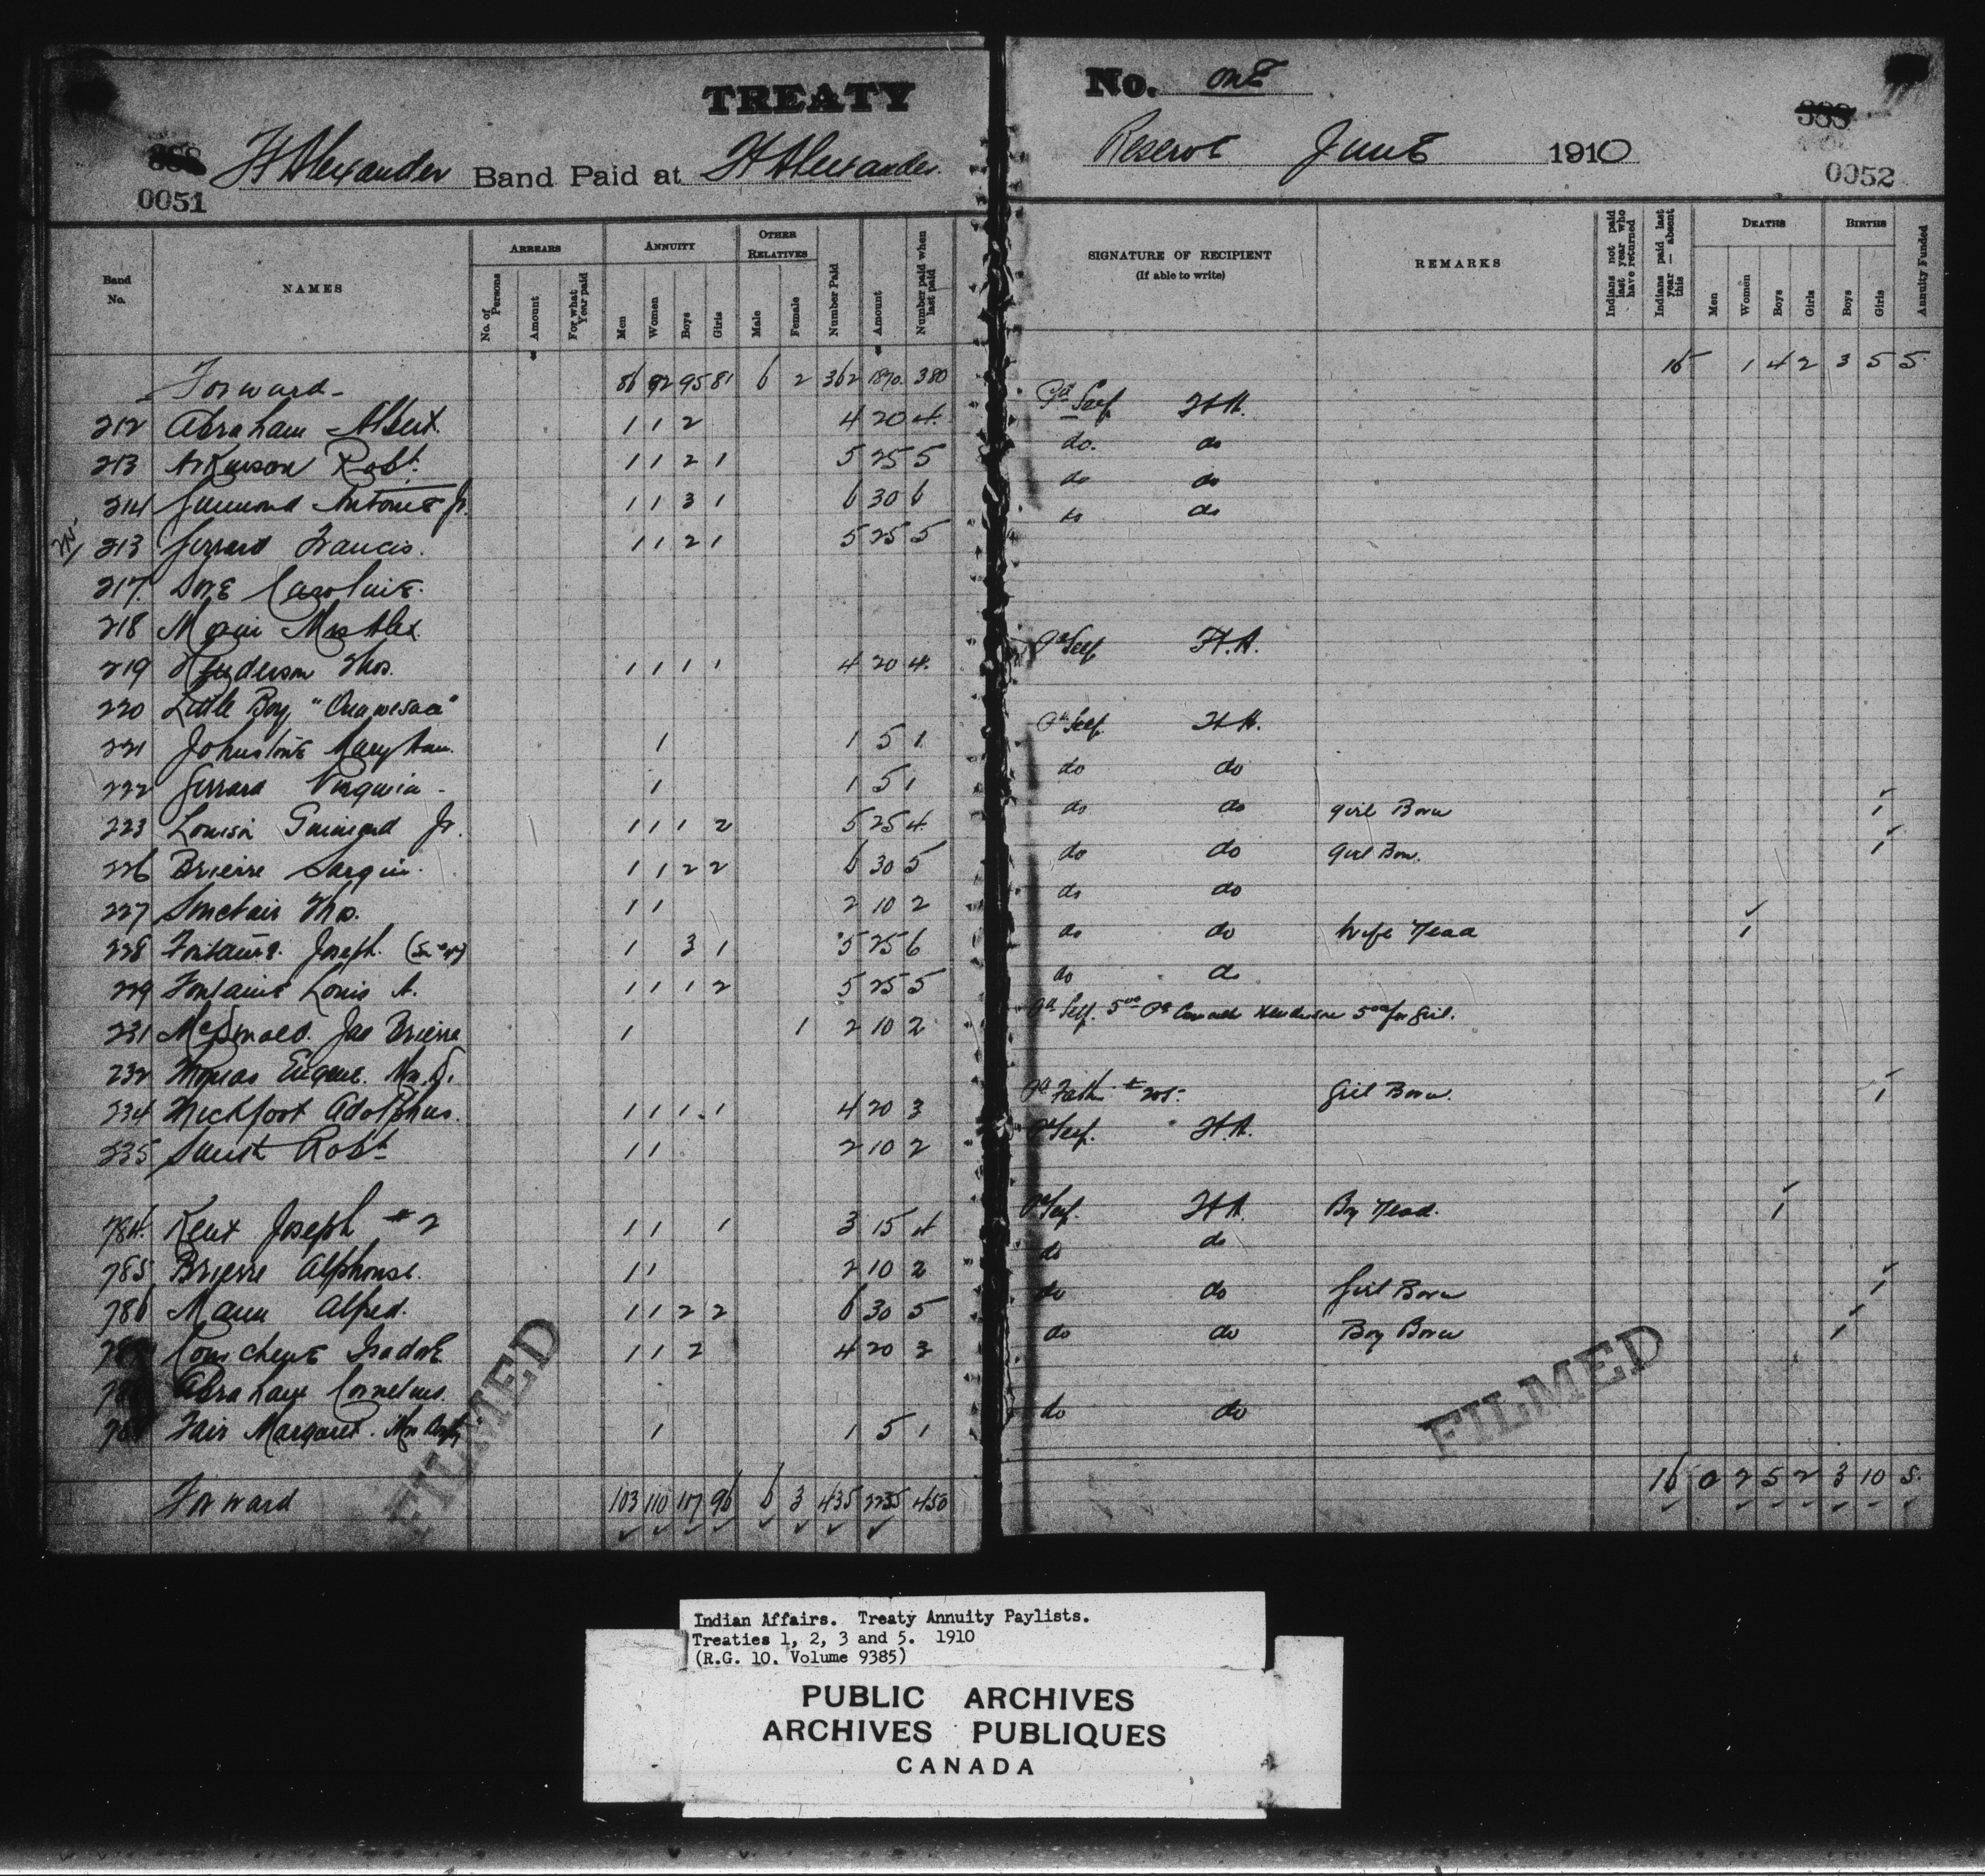 TREATY
No. OnE
388
388
Ft Alexander Band Paid at Ft Alexander.
Reserve JunE 1910
0051
0052
Band No. NAMES ARREARS No. of Persons Amount For what Year paid ANNUITY Men Women Boys Girls OTHER RELATIVES Male Female Number Paid Amount Number paid when last paid
SIGNATURE OF RECIPIENT (If able to write) REMARKS Indians not paid last year who have returned Indians paid last year — absent this DEATHS Men Women Boys Girls BIRTHS Boys Girls Annuity Funded
Forward 86 92 95 81 6 2 362 1870. 380 1 4 2 3 5 5
212 Abraham Albert 1 1 2 4 20 4 Pd Self Ft A.
213 Robt. 1 1 2 1 5 25 5 do. do
214 Antoine Jr. 1 1 3 1 6 30 6 do do
213 Francis. 1 1 2 1 5 25 5 do do
217. Caroline.
218 Morin Mrs Alex.
219 Henderson Thos. 1 1 1 1 4 20 4. Pd Self Ft. A.
220 Little Boy
221 Johnstone Mary Ann. 1 1 5 1 Pd Self. Ft A.
222 1 1 5 1 do do
223 Louison Jr. 1 1 1 2 5 25 4 do do Girl Born 1
226 Brierre 1 1 2 2 6 30 5 do do Girl Born. 1
227 Sinclair Thos. 1 1 2 10 2 do do
228 Fontaine. Joseph. 1 3 1 5 25 6 do do Wife Dead 1
229 Fontaine Louis A. 1 1 1 2 5 25 5 do do
231 McDonald. Jas Brierre 1 1 2 10 2 Pd Self. 5 00 Pd Henderson 5 00 for Girl.
232 Thomas Eugene. Mrs
234 Adolphus. 1 1 1 1 4 20 3 Pd Father Girl Born. 1
235 Robt 1 1 2 10 2 Pd Self. Ft. A.
784. Kent Joseph #2 1 1 1 3 15 4 Pd Self. Ft A. Boy Dead. 1
785 Brierre Alphonse. 1 1 2 10 2 do do
786 Mann Alfred. 1 1 2 2 6 30 5 do do Girl Born 1
Courchene Isadore 1 1 2 4 20 3 do do Boy Born 1
Abraham Cornelius.
Fair Margaret. Mrs 1 1 5 1 do do
Forward 103 110 117 96 6 3 435 2235 450 16 0 2 5 2 3 10 5.
FILMED
FILMED
Indian Affairs. Treaty Annuity Paylists.
Treaties 1, 2, 3 and 5. 1910
(R.G. 10. Volume 9385)
PUBLIC ARCHIVES
ARCHIVES PUBLIQUES
CANADA